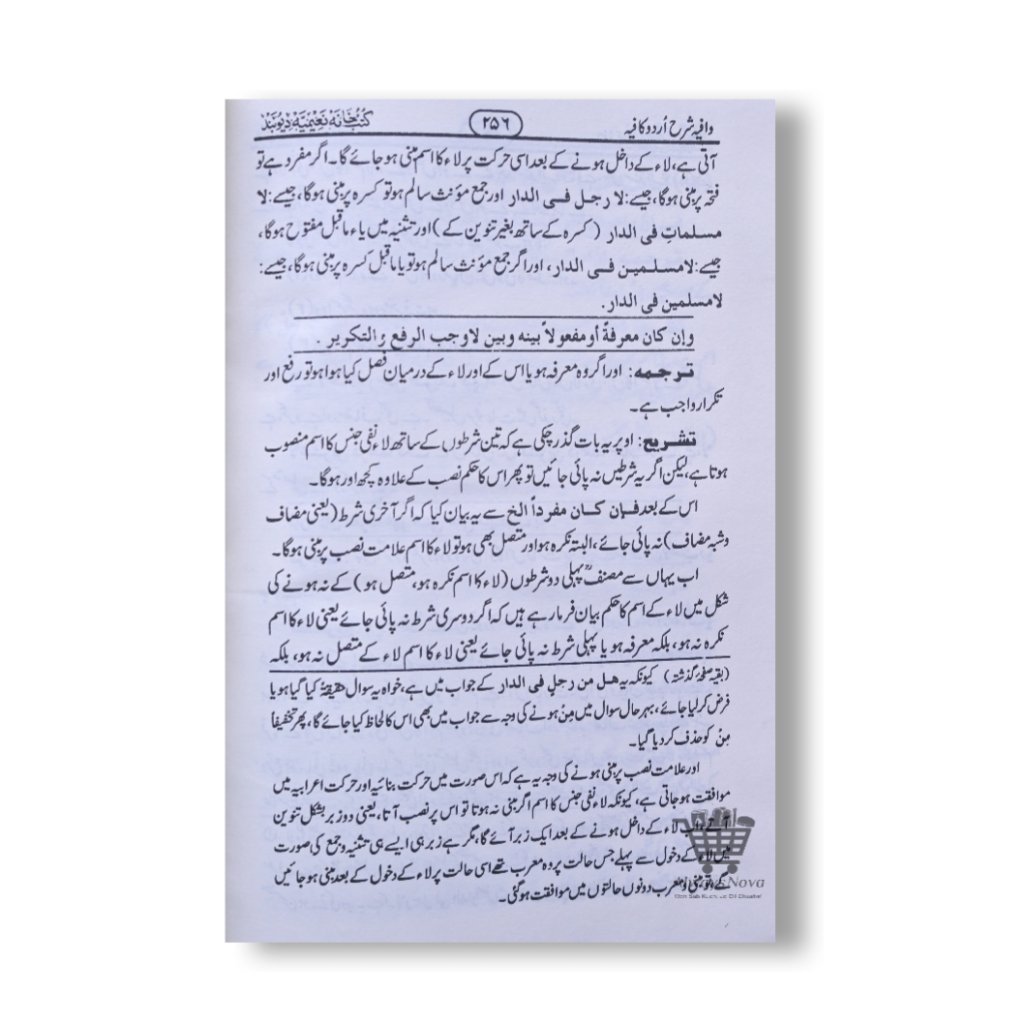 وافیہ شرح اُردو کافیہ
۲۵۶
کتب خانہ نعیمیہ دیوبند
آتی ہے، لاء کے داخل ہونے کے بعد اسی حرکت پر لاء کا اسم مبنی ہو جائے گا۔ اگر مفرد ہے تو
فتحہ پر مبنی ہوگا، جیسے: لا رجل فی الدار اور جمع مؤنث سالم ہو تو کسرہ پر مبنی ہوگا، جیسے: لا
مسلماتِ فی الدار (کسرہ کے ساتھ بغیر تنوین کے) اور تثنیہ میں یاء ماقبل مفتوح ہوگا،
جیسے: لامسلمین فی الدار، اور اگر جمع مؤنث سالم ہو تو یا ماقبل کسرہ پر مبنی ہوگا، جیسے:
لامسلمین فی الدار.
وإن كان معرفةً أو مفعولاً بينه وبين لاوجب الرفع والتكرير .
ترجمہ: اور اگر وہ معرفہ ہو یا اس کے اور لاء کے درمیان فصل کیا ہوا ہو تو رفع اور
تکرار واجب ہے۔
تشریح: اوپر یہ بات گذر چکی ہے کہ تین شرطوں کے ساتھ لاء نفی جنس کا اسم منصوب
ہوتا ہے، لیکن اگر یہ شرطیں نہ پائی جائیں تو پھر اس کا حکم نصب کے علاوہ کچھ اور ہوگا۔
اس کے بعد فإن کان مفرداً الخ سے یہ بیان کیا کہ اگر آخری شرط (یعنی مضاف
وشبہ مضاف) نہ پائی جائے، البتہ نکرہ ہو اور متصل بھی ہو تو لاء کا اسم علامت نصب پر مبنی ہوگا۔
اب یہاں سے مصنفؒ پہلی دو شرطوں (لاء کا اسم نکرہ ہو، متصل ہو) کے نہ ہونے کی
شکل میں لاء کے اسم کا حکم بیان فرما رہے ہیں کہ اگر دوسری شرط نہ پائی جائے یعنی لاء کا اسم
نکرہ نہ ہو، بلکہ معرفہ ہو یا پہلی شرط نہ پائی جائے یعنی لاء کا اسم لاء کے متصل نہ ہو، بلکہ
(بقیہ صفحۂ گذشتہ) کیونکہ یہ ھل من رجلٍ فی الدار کے جواب میں ہے، خواہ یہ سوال حقیقۃً کیا گیا ہو یا
فرض کرلیا جائے، بہرحال سوال میں مِنْ ہونے کی وجہ سے جواب میں بھی اس کا لحاظ کیا جائے گا، پھر تخفیفاً
مِنْ کو حذف کر دیا گیا۔
اور علامت نصب پر مبنی ہونے کی وجہ یہ ہے کہ اس صورت میں حرکت بنائیہ اور حرکت اعرابیہ میں
موافقت ہو جاتی ہے، کیونکہ لاء نفی جنس کا اسم اگر مبنی نہ ہوتا تو اس پر نصب آتا، یعنی دو زبر بشکل تنوین
لاء کے داخل ہونے کے بعد ایک زبر آئے گا، مگر ہے زبر ہی ایسے ہی تثنیہ و جمع کی صورت
میں لاء کے دخول سے پہلے جس حالت پر وہ معرب تھے اسی حالت پر لاء کے دخول کے بعد مبنی ہو جائیں
گے، تو مبنی و معرب دونوں حالتوں میں موافقت ہوگئی۔
Nova